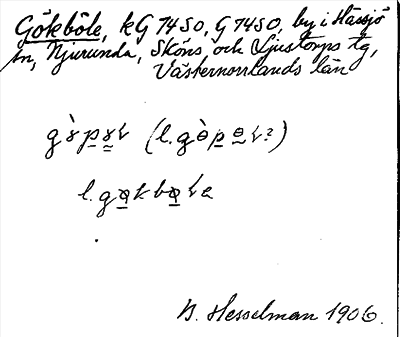 Gökböle, kG 7450, G 7450, by i Hässjö
sn, Njurunda, Sköns, och Ljustorps tg,
Västernorrlands län
(l.
l.
B. Hesselman 1906.